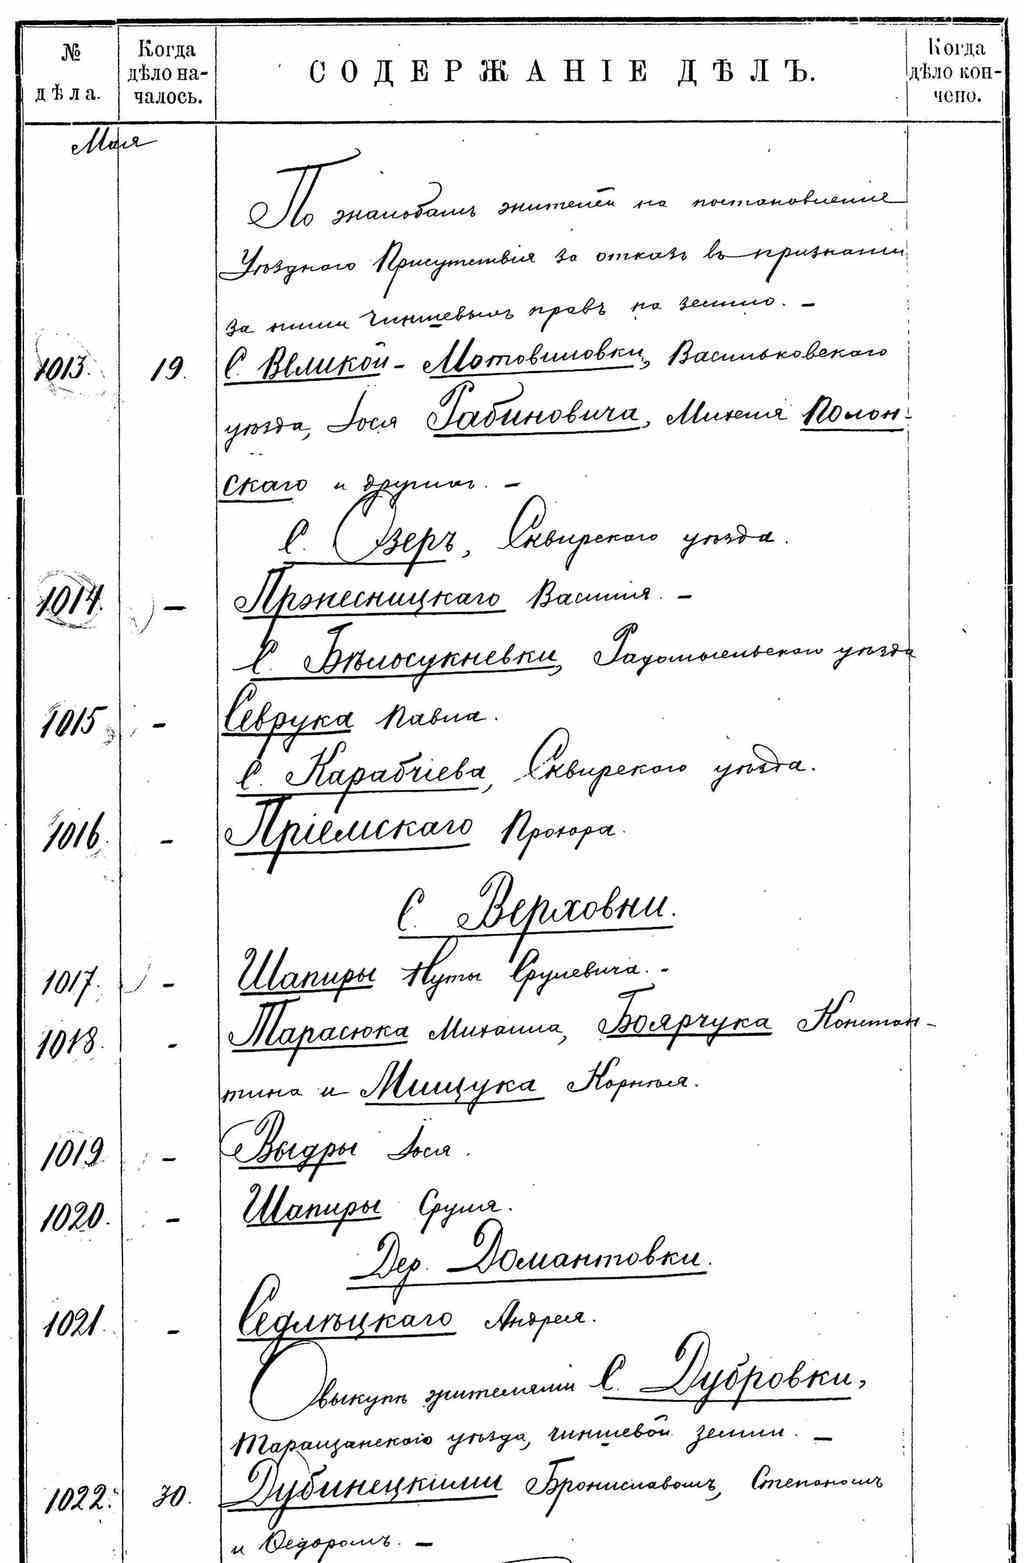 № дѣла.
Когда дѣло началось.
СОДЕРЖАНІЕ ДѢЛЪ.
Когда дѣло кончено.
Мая
По жалобамъ жителей на постановленія
Уѣзднаго Присутствія за отказъ въ признаніи
за ними чиншевыхъ правъ на землю. –
1013. 19. С. Великой-Мотовиловки, Васильковскаго
уѣзда, Іося Рабиновича, Михеля Полон-
скаго и другихъ. –
С. Озеръ, Сквирскаго уѣзда.
1014. – Пржесницкаго Василія. –
С. Бѣлосукневки, Радомысльскаго уѣзда
1015 – Севрука Павла.
С. Карабчіева, Сквирскаго уѣзда.
1016. – Пріемскаго Прохора.
С. Верховни.
1017. – Шапиры Нуты Срулевича. –
1018. – Тарасюка Михаила, Боярчука Констан-
тина и Мищука Корнилія.
1019 – Выдры Іося.
1020. – Шапиры Сруля.
Дер. Домантовки.
1021. – Седлѣцкаго Андрея.
О выкупѣ жителями С. Дубровки,
Таращанскаго уѣзда, чиншевой земли. –
1022. 30. Дубинецкими Брониславомъ, Степаномъ
и Ѳедоромъ. –